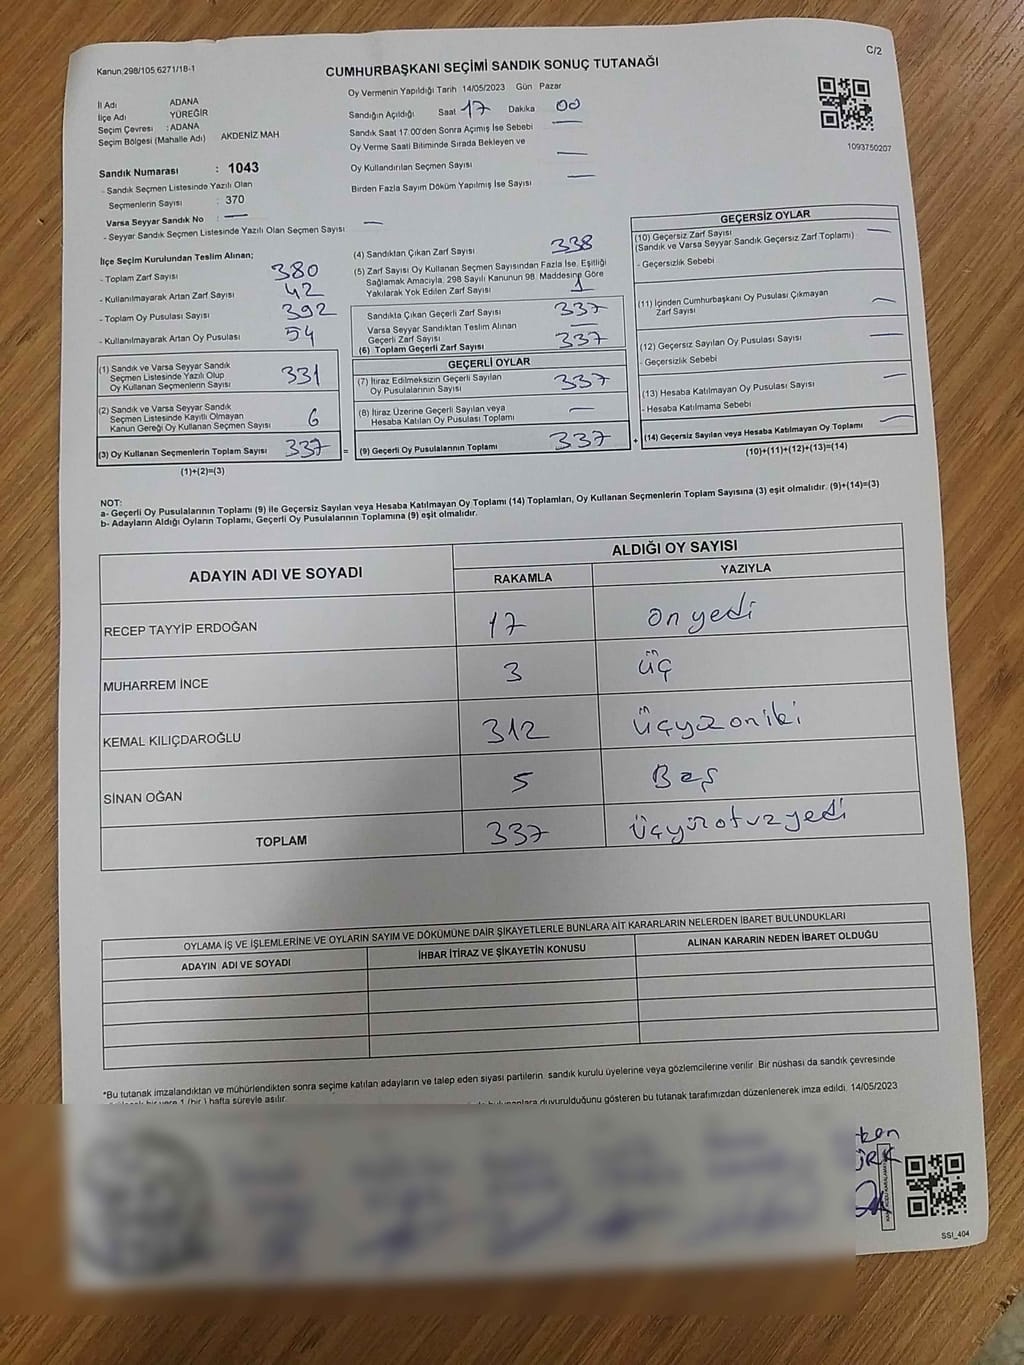 Kanun:298/105,6271/18-1
C/2
CUMHURBAŞKANI SEÇİMİ SANDIK SONUÇ TUTANAĞI
İl Adı ADANA
İlçe Adı YÜREĞİR
Seçim Çevresi : ADANA
Seçim Bölgesi (Mahalle Adı) AKDENİZ MAH
Sandık Numarası : 1043
- Sandık Seçmen Listesinde Yazılı Olan
Seçmenlerin Sayısı : 370
Varsa Seyyar Sandık No : —
- Seyyar Sandık Seçmen Listesinde Yazılı Olan Seçmen Sayısı —
Oy Vermenin Yapıldığı Tarih 14/05/2023 Gün Pazar
Sandığın Açıldığı Saat 17 Dakika 00
Sandık Saat 17:00'den Sonra Açımış İse Sebebi —
Oy Verme Saati Bitiminde Sırada Bekleyen ve
Oy Kullandırılan Seçmen Sayısı —
Birden Fazla Sayım Döküm Yapılmış İse Sayısı —
1093750207
İlçe Seçim Kurulundan Teslim Alınan;
- Toplam Zarf Sayısı 380
- Kullanılmayarak Artan Zarf Sayısı 42
- Toplam Oy Pusulası Sayısı 392
- Kullanılmayarak Artan Oy Pusulası 54
(1) Sandık ve Varsa Seyyar Sandık
Seçmen Listesinde Yazılı Olup
Oy Kullanan Seçmenlerin Sayısı 331
(2) Sandık ve Varsa Seyyar Sandık
Seçmen Listesinde Kayıtlı Olmayan
Kanun Gereği Oy Kullanan Seçmen Sayısı 6
(3) Oy Kullanan Seçmenlerin Toplam Sayısı 337
(1)+(2)=(3)
(4) Sandıktan Çıkan Zarf Sayısı 338
(5) Zarf Sayısı Oy Kullanan Seçmen Sayısından Fazla İse, Eşitliği
Sağlamak Amacıyla, 298 Sayılı Kanunun 98. Maddesine Göre
Yakılarak Yok Edilen Zarf Sayısı 1
Sandıkta Çıkan Geçerli Zarf Sayısı 337
Varsa Seyyar Sandıktan Teslim Alınan
Geçerli Zarf Sayısı —
(6) Toplam Geçerli Zarf Sayısı 337
GEÇERLİ OYLAR
(7) İtiraz Edilmeksizin Geçerli Sayılan
Oy Pusulalarının Sayısı 337
(8) İtiraz Üzerine Geçerli Sayılan veya
Hesaba Katılan Oy Pusulası Toplamı —
= (9) Geçerli Oy Pusulalarının Toplamı 337 +
GEÇERSİZ OYLAR
(10) Geçersiz Zarf Sayısı —
(Sandık ve Varsa Seyyar Sandık Geçersiz Zarf Toplamı)
- Geçersizlik Sebebi
(11) İçinden Cumhurbaşkanı Oy Pusulası Çıkmayan
Zarf Sayısı —
(12) Geçersiz Sayılan Oy Pusulası Sayısı —
- Geçersizlik Sebebi
(13) Hesaba Katılmayan Oy Pusulası Sayısı —
- Hesaba Katılmama Sebebi
(14) Geçersiz Sayılan veya Hesaba Katılmayan Oy Toplamı —
(10)+(11)+(12)+(13)=(14)
NOT:
a- Geçerli Oy Pusulalarının Toplamı (9) ile Geçersiz Sayılan veya Hesaba Katılmayan Oy Toplamı (14) Toplamları, Oy Kullanan Seçmenlerin Toplam Sayısına (3) eşit olmalıdır. (9)+(14)=(3)
b- Adayların Aldığı Oyların Toplamı, Geçerli Oy Pusulalarının Toplamına (9) eşit olmalıdır.
ADAYIN ADI VE SOYADI
ALDIĞI OY SAYISI
RAKAMLA YAZIYLA
RECEP TAYYİP ERDOĞAN 17 on yedi
MUHARREM İNCE 3 üç
KEMAL KILIÇDAROĞLU 312 üçyüzoniki
SİNAN OĞAN 5 Beş
TOPLAM 337 üçyüzotuzyedi
OYLAMA İŞ VE İŞLEMLERİNE VE OYLARIN SAYIM VE DÖKÜMÜNE DAİR ŞİKAYETLERLE BUNLARA AİT KARARLARIN NELERDEN İBARET BULUNDUKLARI
ADAYIN ADI VE SOYADI İHBAR İTİRAZ VE ŞİKAYETİN KONUSU ALINAN KARARIN NEDEN İBARET OLDUĞU
*Bu tutanak imzalandıktan ve mühürlendikten sonra seçime katılan adayların ve talep eden siyasi partilerin, sandık kurulu üyelerine veya gözlemcilerine verilir. Bir nüshası da sandık çevresinde
bir yere 1 (bir) hafta süreyle asılır.
duyurulduğunu gösteren bu tutanak tarafımızdan düzenlenerek imza edildi. 14/05/2023
SSI_404